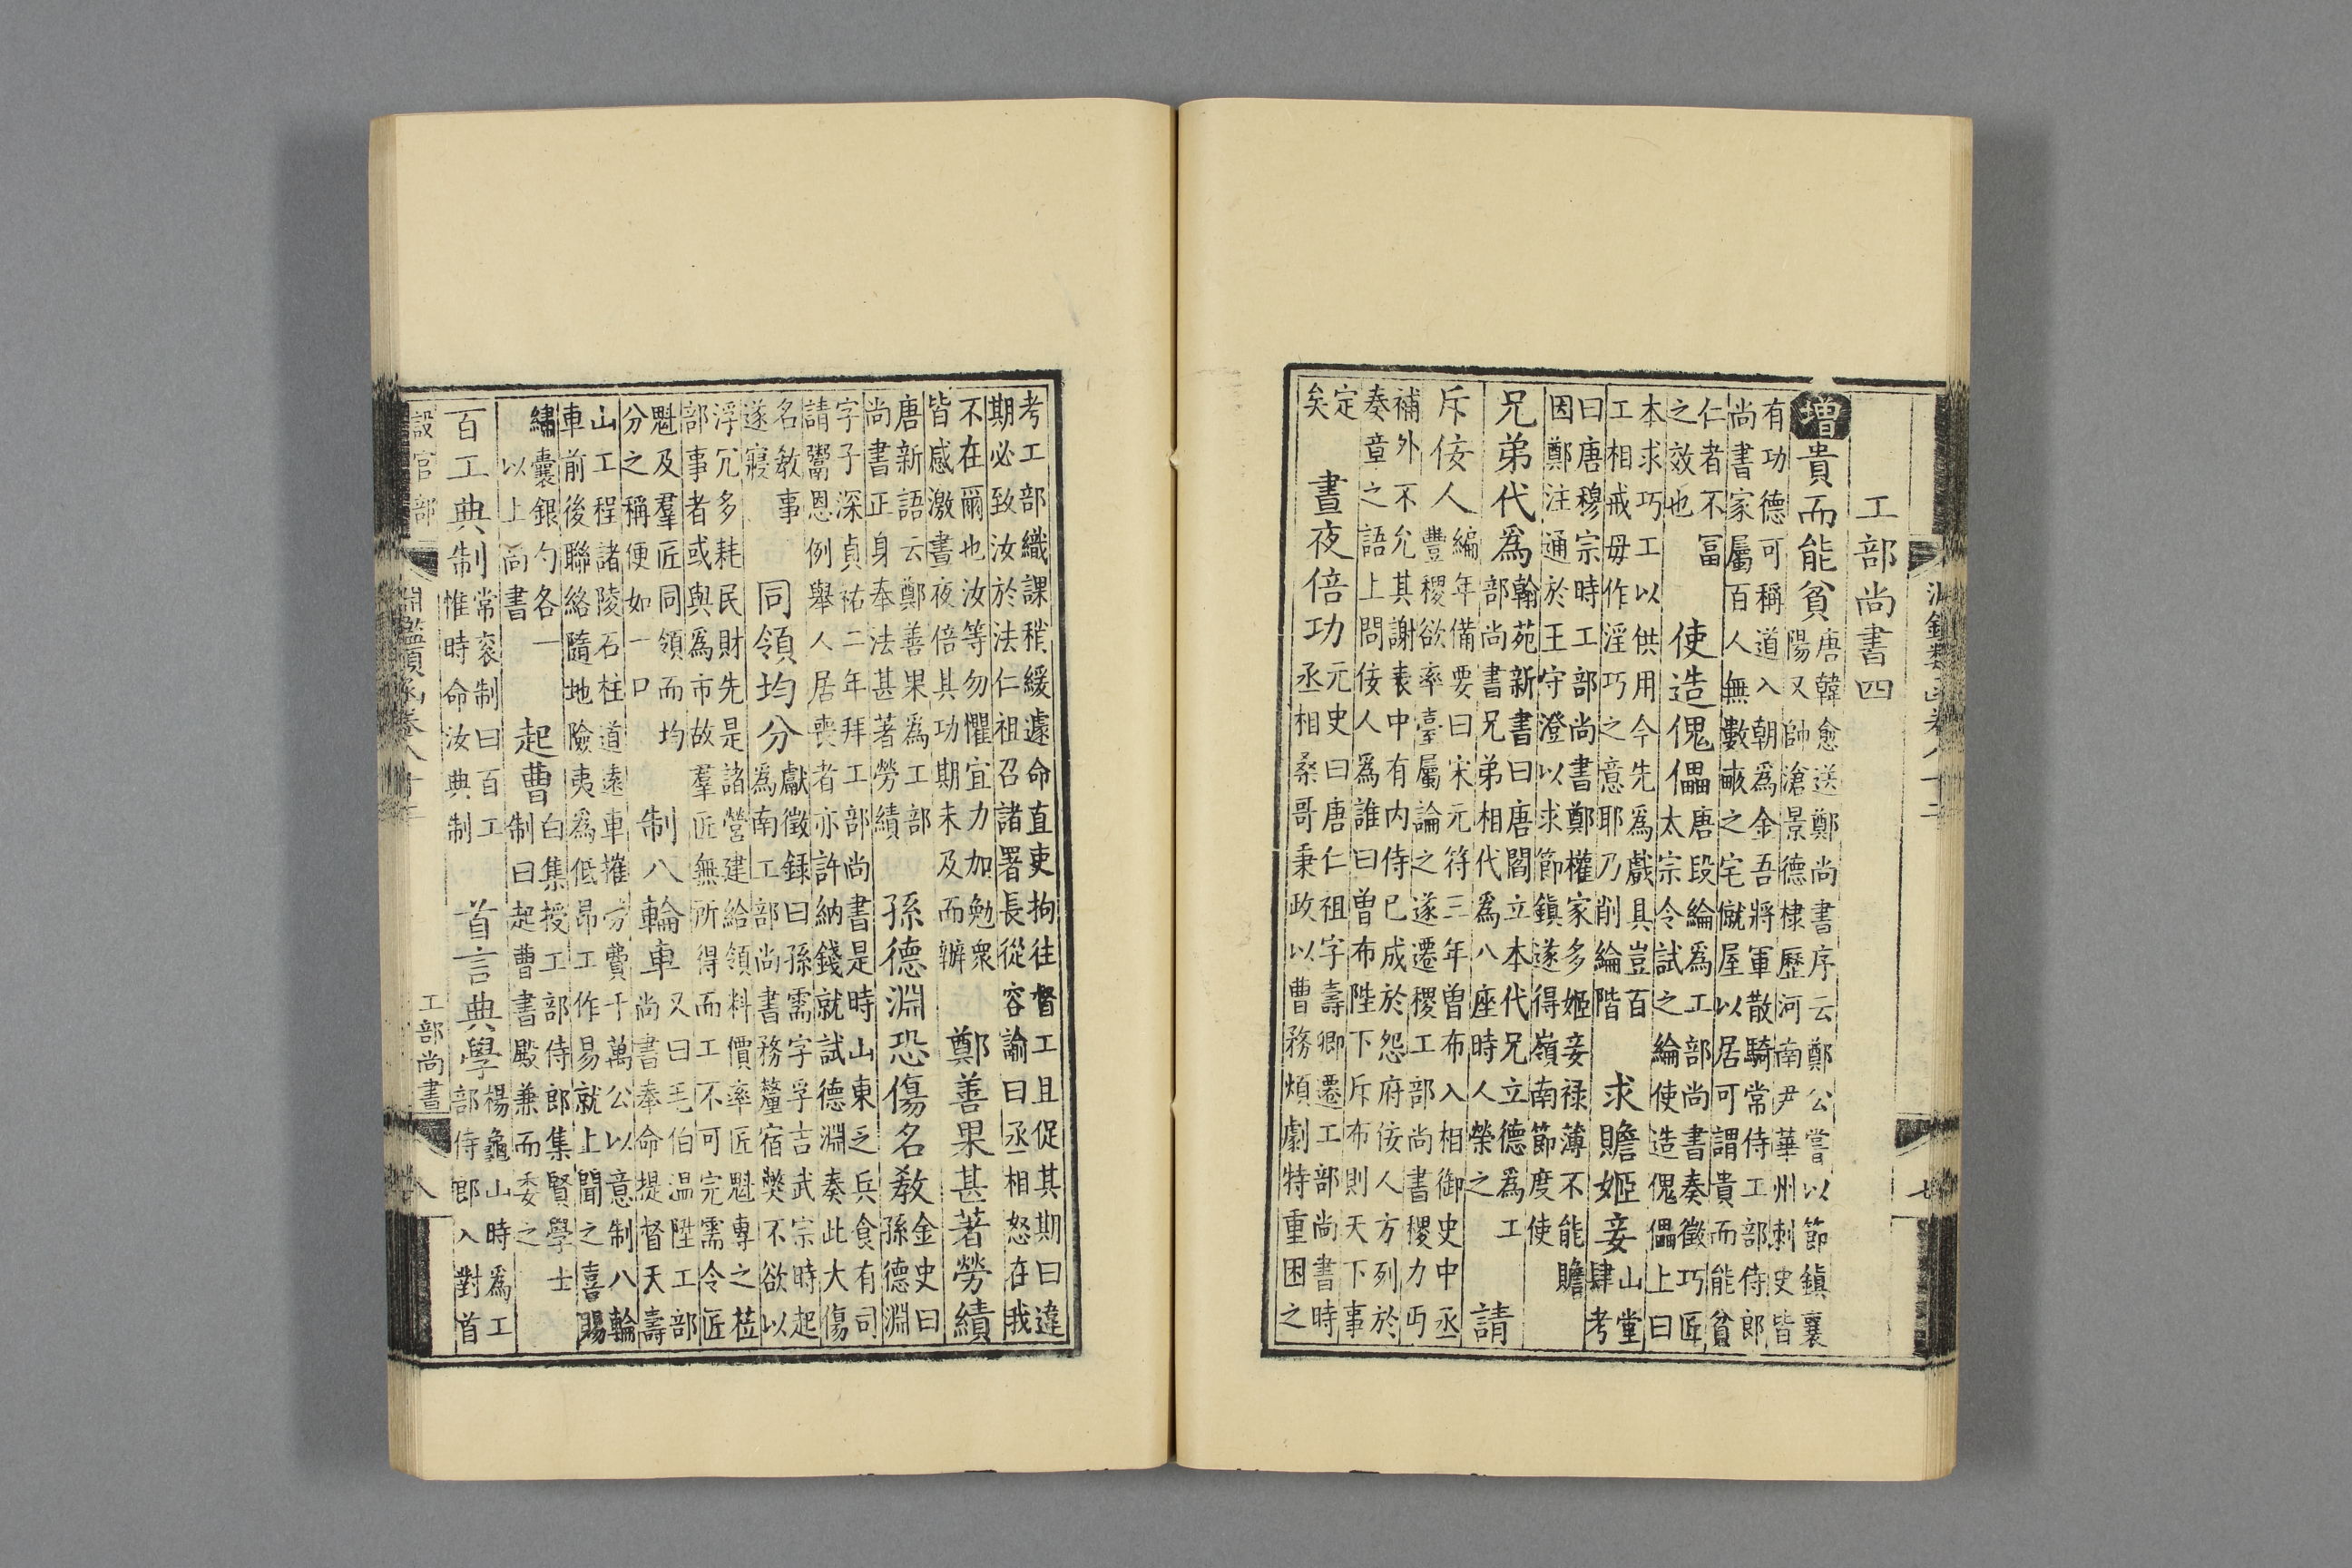 淵鑑類函卷八十二
七
工部尚書四
增貴而能貧
唐韓愈送鄭尚書序云鄭公嘗以節鎮襄
陽又帥滄景德棣歷河南尹華州刺史皆
有功德可稱道入朝為金吾將軍散騎常侍工部侍郎
尚書家屬百人無數畝之宅僦屋以居可謂貴而能貧
仁者不富
之效也
使造傀儡
唐段綸爲工部尚書奏徵巧匠
太宗令試之綸使造傀儡上曰
本求巧工以供用今先爲戲具豈百
工相戒毋作淫巧之意耶乃削綸階
求贍姬妾
山堂
肆考
曰唐穆宗時工部尚書鄭權家多姬妾祿薄不能贍
因鄭注通於王守澄以求節鎮遂得嶺南節度使
兄弟代爲
翰苑新書曰唐閻立本代兄立德爲工
部尚書兄弟相代爲八座時人榮之
請
斥佞人
編年備要曰宋元符三年曾布入相御史中丞
豐稷欲率臺屬論之遂遷稷工部尚書稷力丐
補外不允其謝表中有内侍已成於怨府佞人方列於
奏章之語上問佞人爲誰曰曾布陛下斥布則天下事
定
矣
晝夜倍功
元史曰唐仁祖字壽卿遷工部尚書時
丞相桑哥秉政以曹務煩劇特重困之
考工部織課稍緩遽命直吏拘往督工且促其期曰違
期必致汝於法仁祖召諸署長從容諭曰丞相怒在我
不在爾也汝等勿懼宜力加勉衆
皆感激晝夜倍其功期未及而辦
鄭善果甚著勞績
唐新語云鄭善果爲工部
尚書正身奉法甚著勞績
孫德淵恐傷名教
金史曰
孫德淵
字子深貞祐二年拜工部尚書是時山東乏兵食有司
請鬻恩例舉人居喪者亦許納錢就試德淵奏此大傷
名教事
遂寢
同領均分
獻徵録曰孫需字孚吉武宗時起
爲南工部尚書務釐宿獘不欲以
浮冗多耗民財先是諸營建給領料價率匠魁專之莅
部事者或與爲市故羣匠無所得而工不可完需令匠
魁及羣匠同領而均
分之稱便如一口
制八輪車
又曰毛伯温陞工部
尚書奉命提督天壽
山工程諸陵石柱道遠車摧方費千萬公以意制八輪
車前後聯絡隨地險夷爲低昂工作易就上聞之喜賜
繡囊銀勺各一
以上尚書
起曹
白集授工部侍郎集賢學士
制曰起曹書殿兼而委之
百工典制
常衮制曰百工
惟時命汝典制
首言典學
楊龜山時爲工
部侍郎入對首
設官部
淵鑑類函卷八十二
工部尚書
八